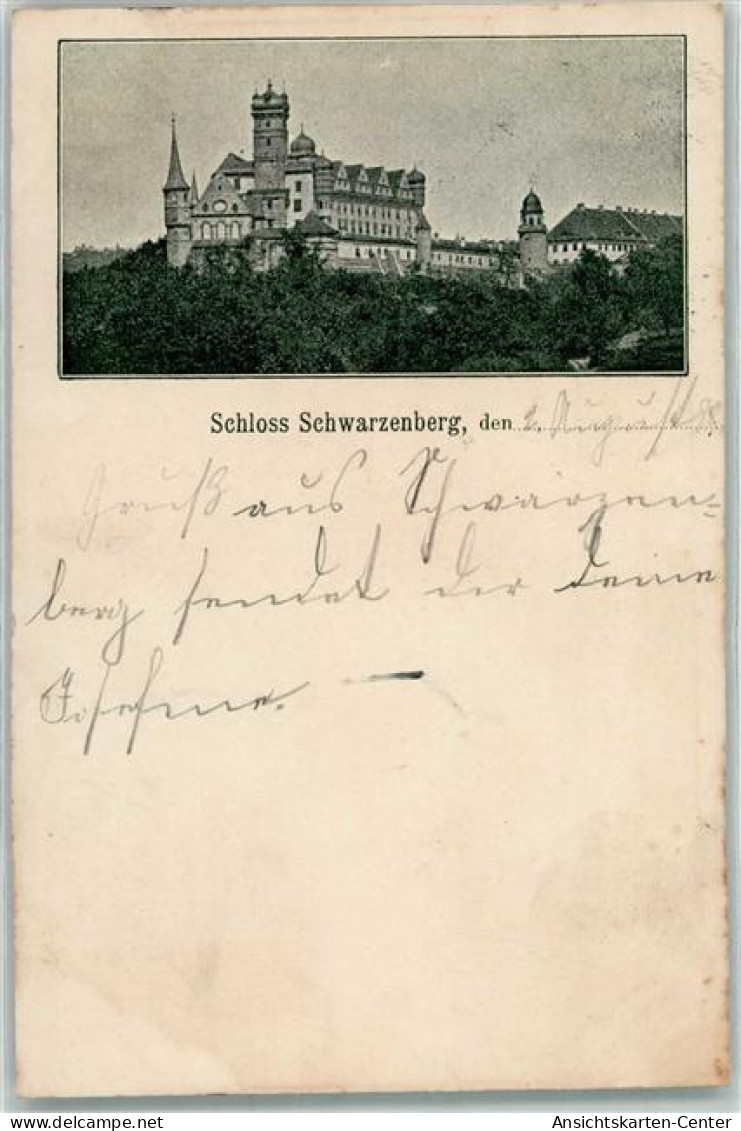 Schloss Schwarzenberg, den 2. August
Gruß aus Schwarzen=
berg sendet dir deine
Josefine. —
www.delcampe.net
Ansichtskarten-Center